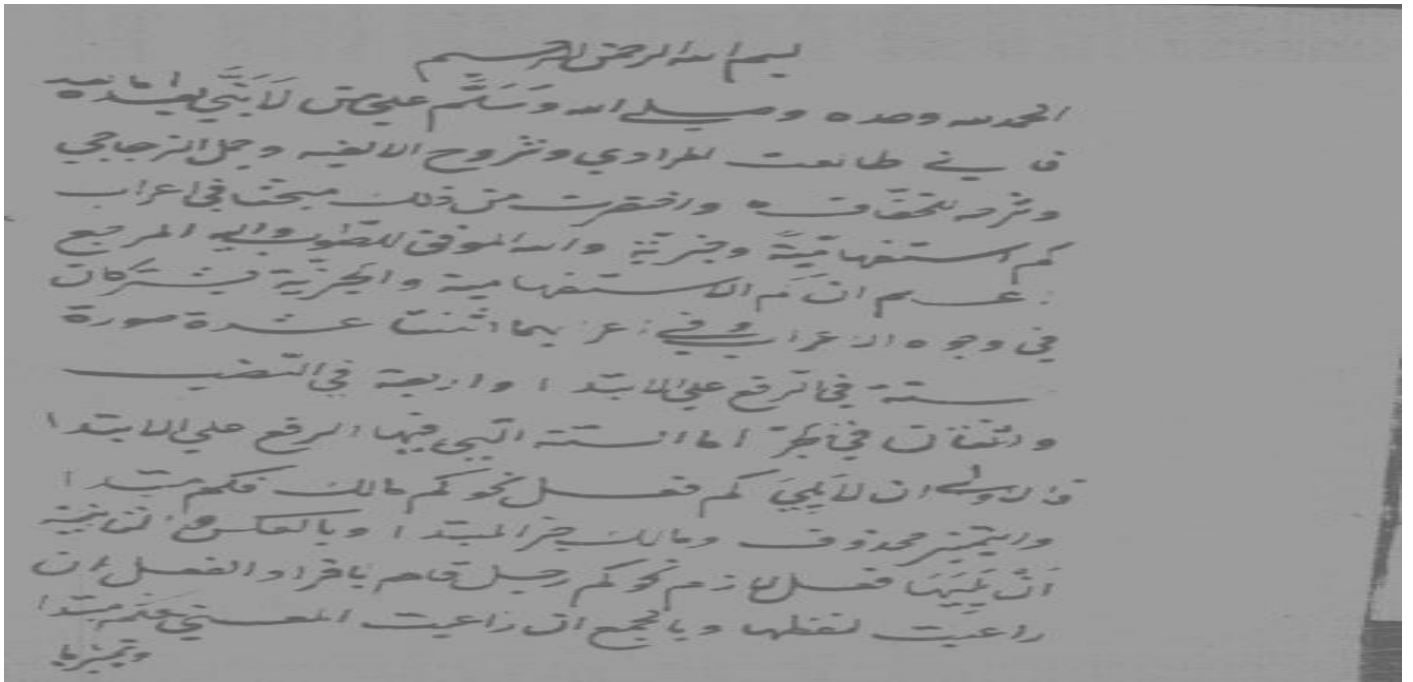 بسم الله الرحمن الرحيم
الحمد لله وحده وصلى الله وَسَلَّم على من لَا نَبِيّ بعده اما بعد
فاني طالعت المرادي وشروح الالفيه وجمل الزجاجي
وشرحه للخفاف واختصرت من ذلك مبحثا في اعراب
كم استفهاميَّةً وخبريَّة والله الموفق للصواب واليه المرجع
اعلم ان كم الاستفهامية والخبريّة يشتركان
في وجوه الاعراب وفي اعرابهما اثنتا عشرة صورة
ستة في الرفع علي الابتدا واربعة في النّصب
واثنتان في الجرّ اما الستة التي فيها الرفع علي الابتدا
فالاولي ان لا يَلِيَ كم فعل نحو كم مالك فكم مبتدا
والتمييز محذوف ومالك خبر المبتدا وبالعكس الثانية
اَنْ يَلِيَهَا فعل لازم نحو كم رجل قام بافراد الفعل ان
راعيت لفظها وبالجمع ان راعيت المعني فكم مبتدا
وتمييزها